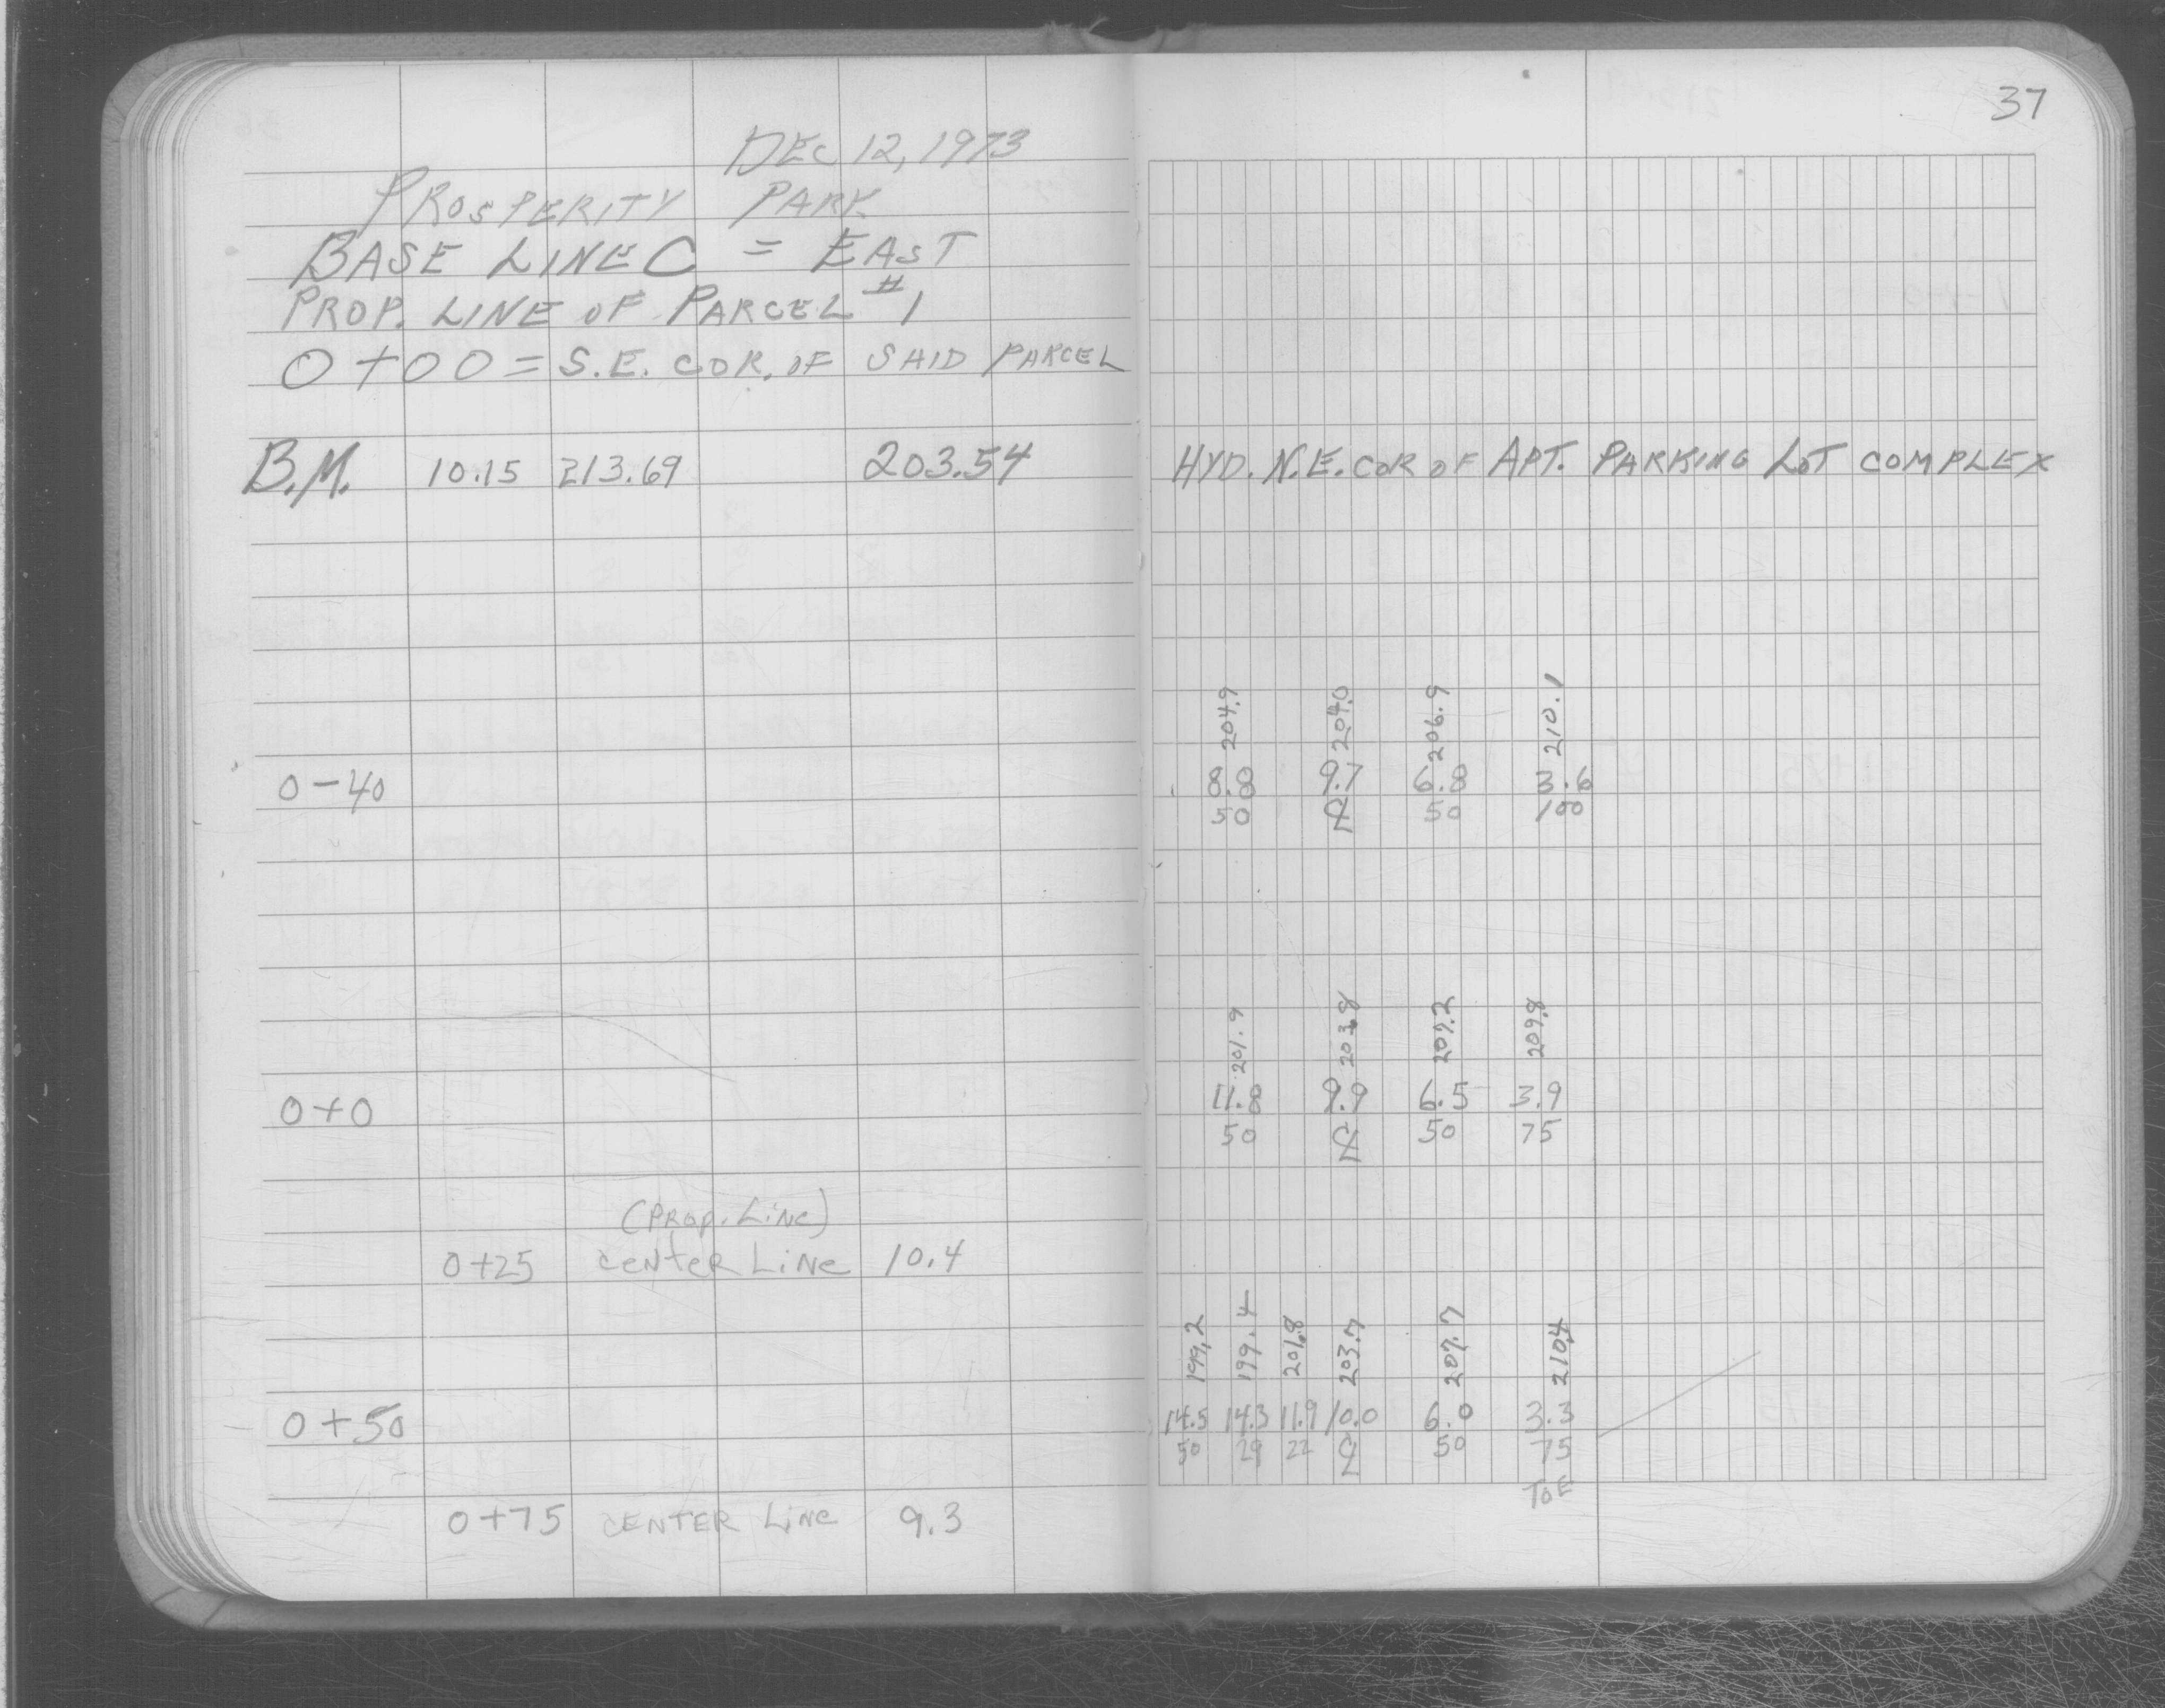 37
DEC 12, 1973
PROSPERITY PARK
BASE LINE C = EAST
PROP. LINE OF PARCEL #1
0+00 = S.E. COR. OF SAID PARCEL
B.M. 10.15 213.69 203.54 HYD. N.E. COR OF APT. PARKING LOT COMPLEX
204.9 204.0 206.9 210.1
0-40 8.8 9.7 6.8 3.6
50 ℄ 50 100
201.9 203.8 207.2 209.8
0+0 11.8 9.9 6.5 3.9
50 ℄ 50 75
(Prop. Line)
0+25 center Line 10.4
199.2 199.4 201.8 203.7 207.7 210.4
0+50 14.5 14.3 11.9 10.0 6.0 3.3
50 29 22 ℄ 50 75
TOE
0+75 CENTER LiNe 9.3